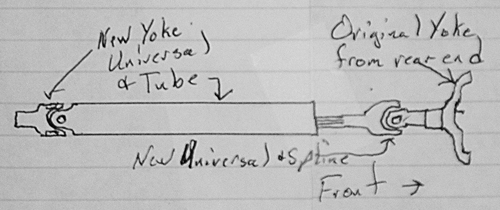 New Yoke
Universal
& Tube
Original Yoke
from rear end
New Universal & Spline
Front →